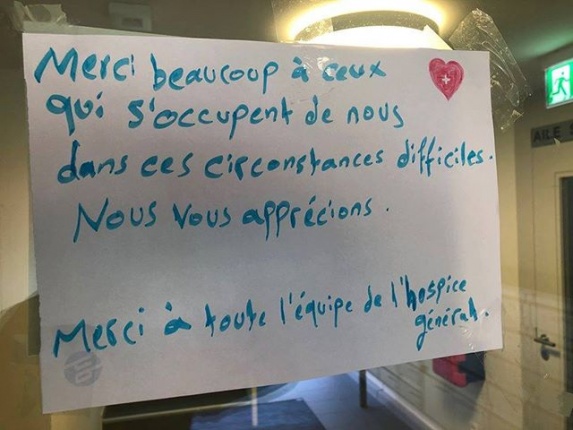 Merci beaucoup à ceux
qui s'occupent de nous
dans ces circonstances difficiles.
Nous vous apprécions.
Merci à toute l'équipe de l'hospice
général.
AILE